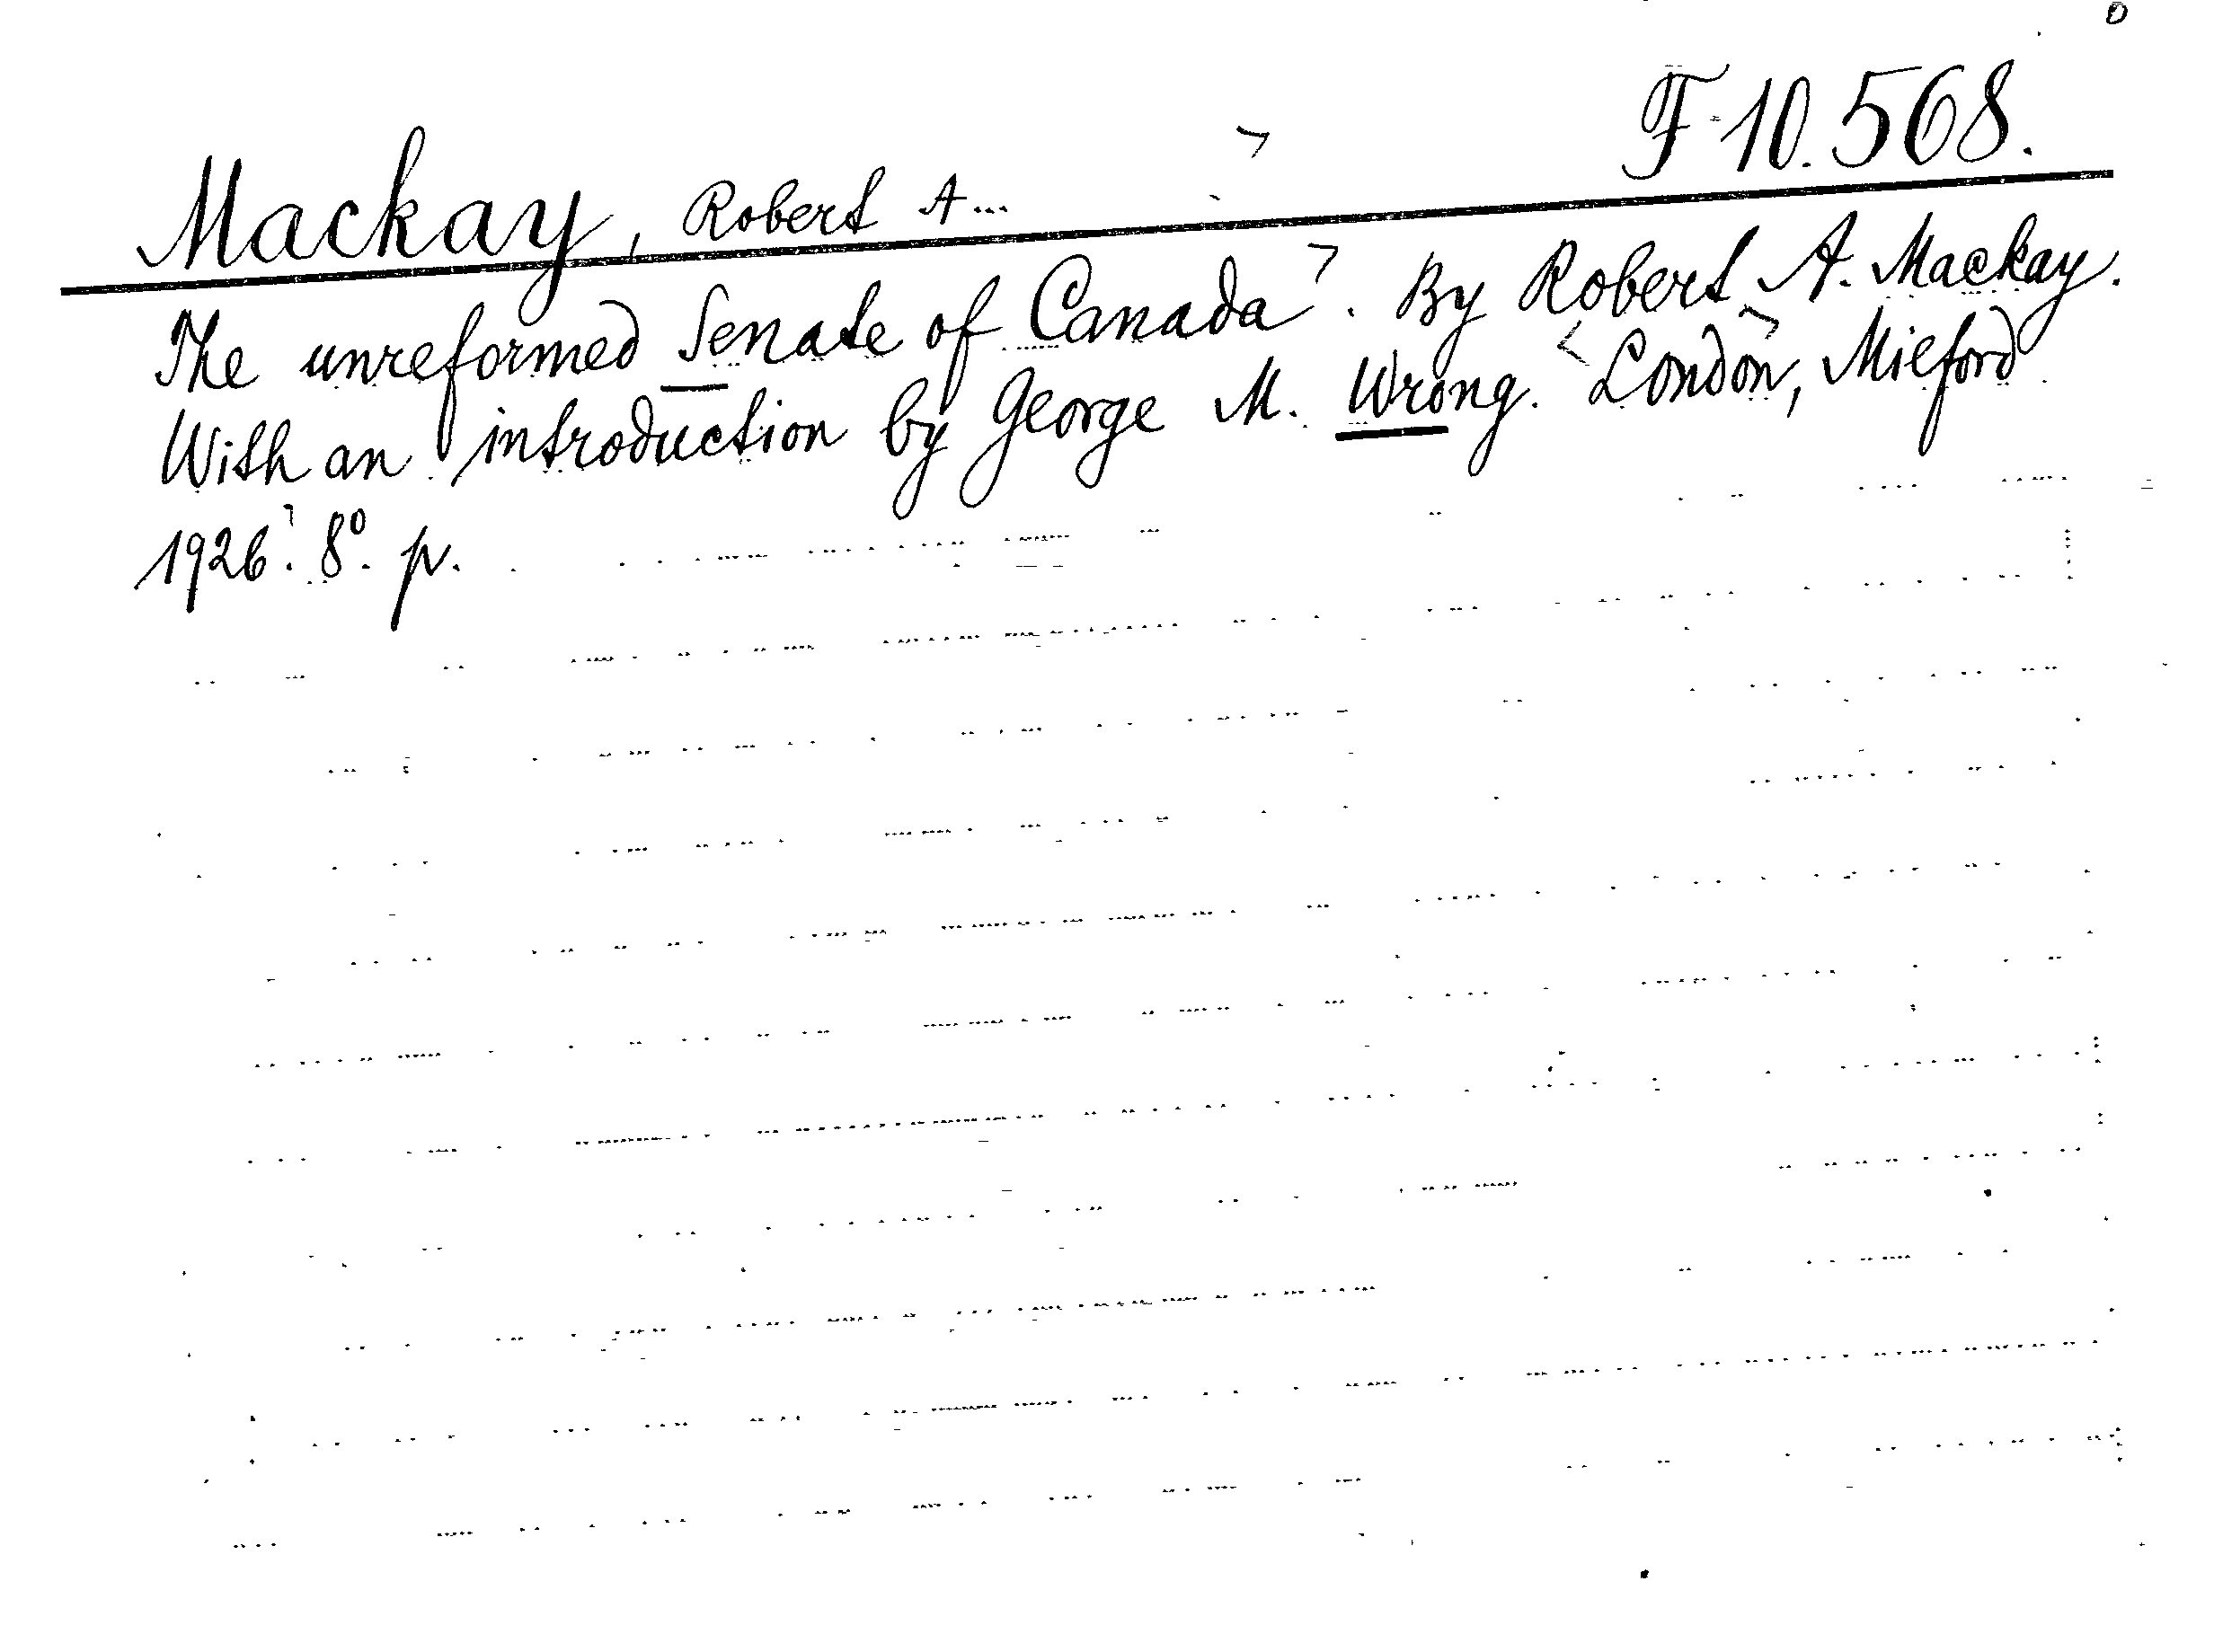 F 10.568.
Mackay, Robert A...
The unreformed Senate of Canada. By Robert A. Mackay.
With an introduction by George M. Wrong. London, Milford
1926. 8°. p.